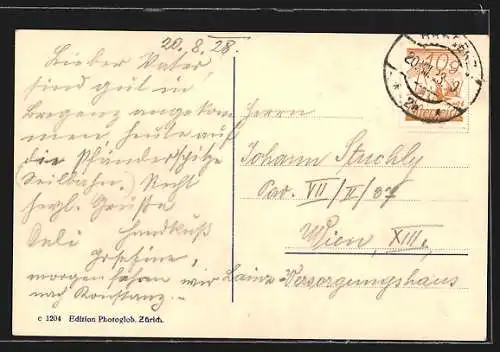 20. 8. 28.
Lieber Vater,
sind gut in
Bregenz angekom
men, heute auf
die Pfänderspitze
(Seilbahn.) Recht
herzl. Grüße
Handkuß
Josefine,
morgen fahren wir
nach Konstanz.-
Herrn
Johann Stuchly
Pav. VII/II/37
Wien, XIII.,
Lainz-Versorgungshaus
c 1204 Edition Photoglob. Zürich.